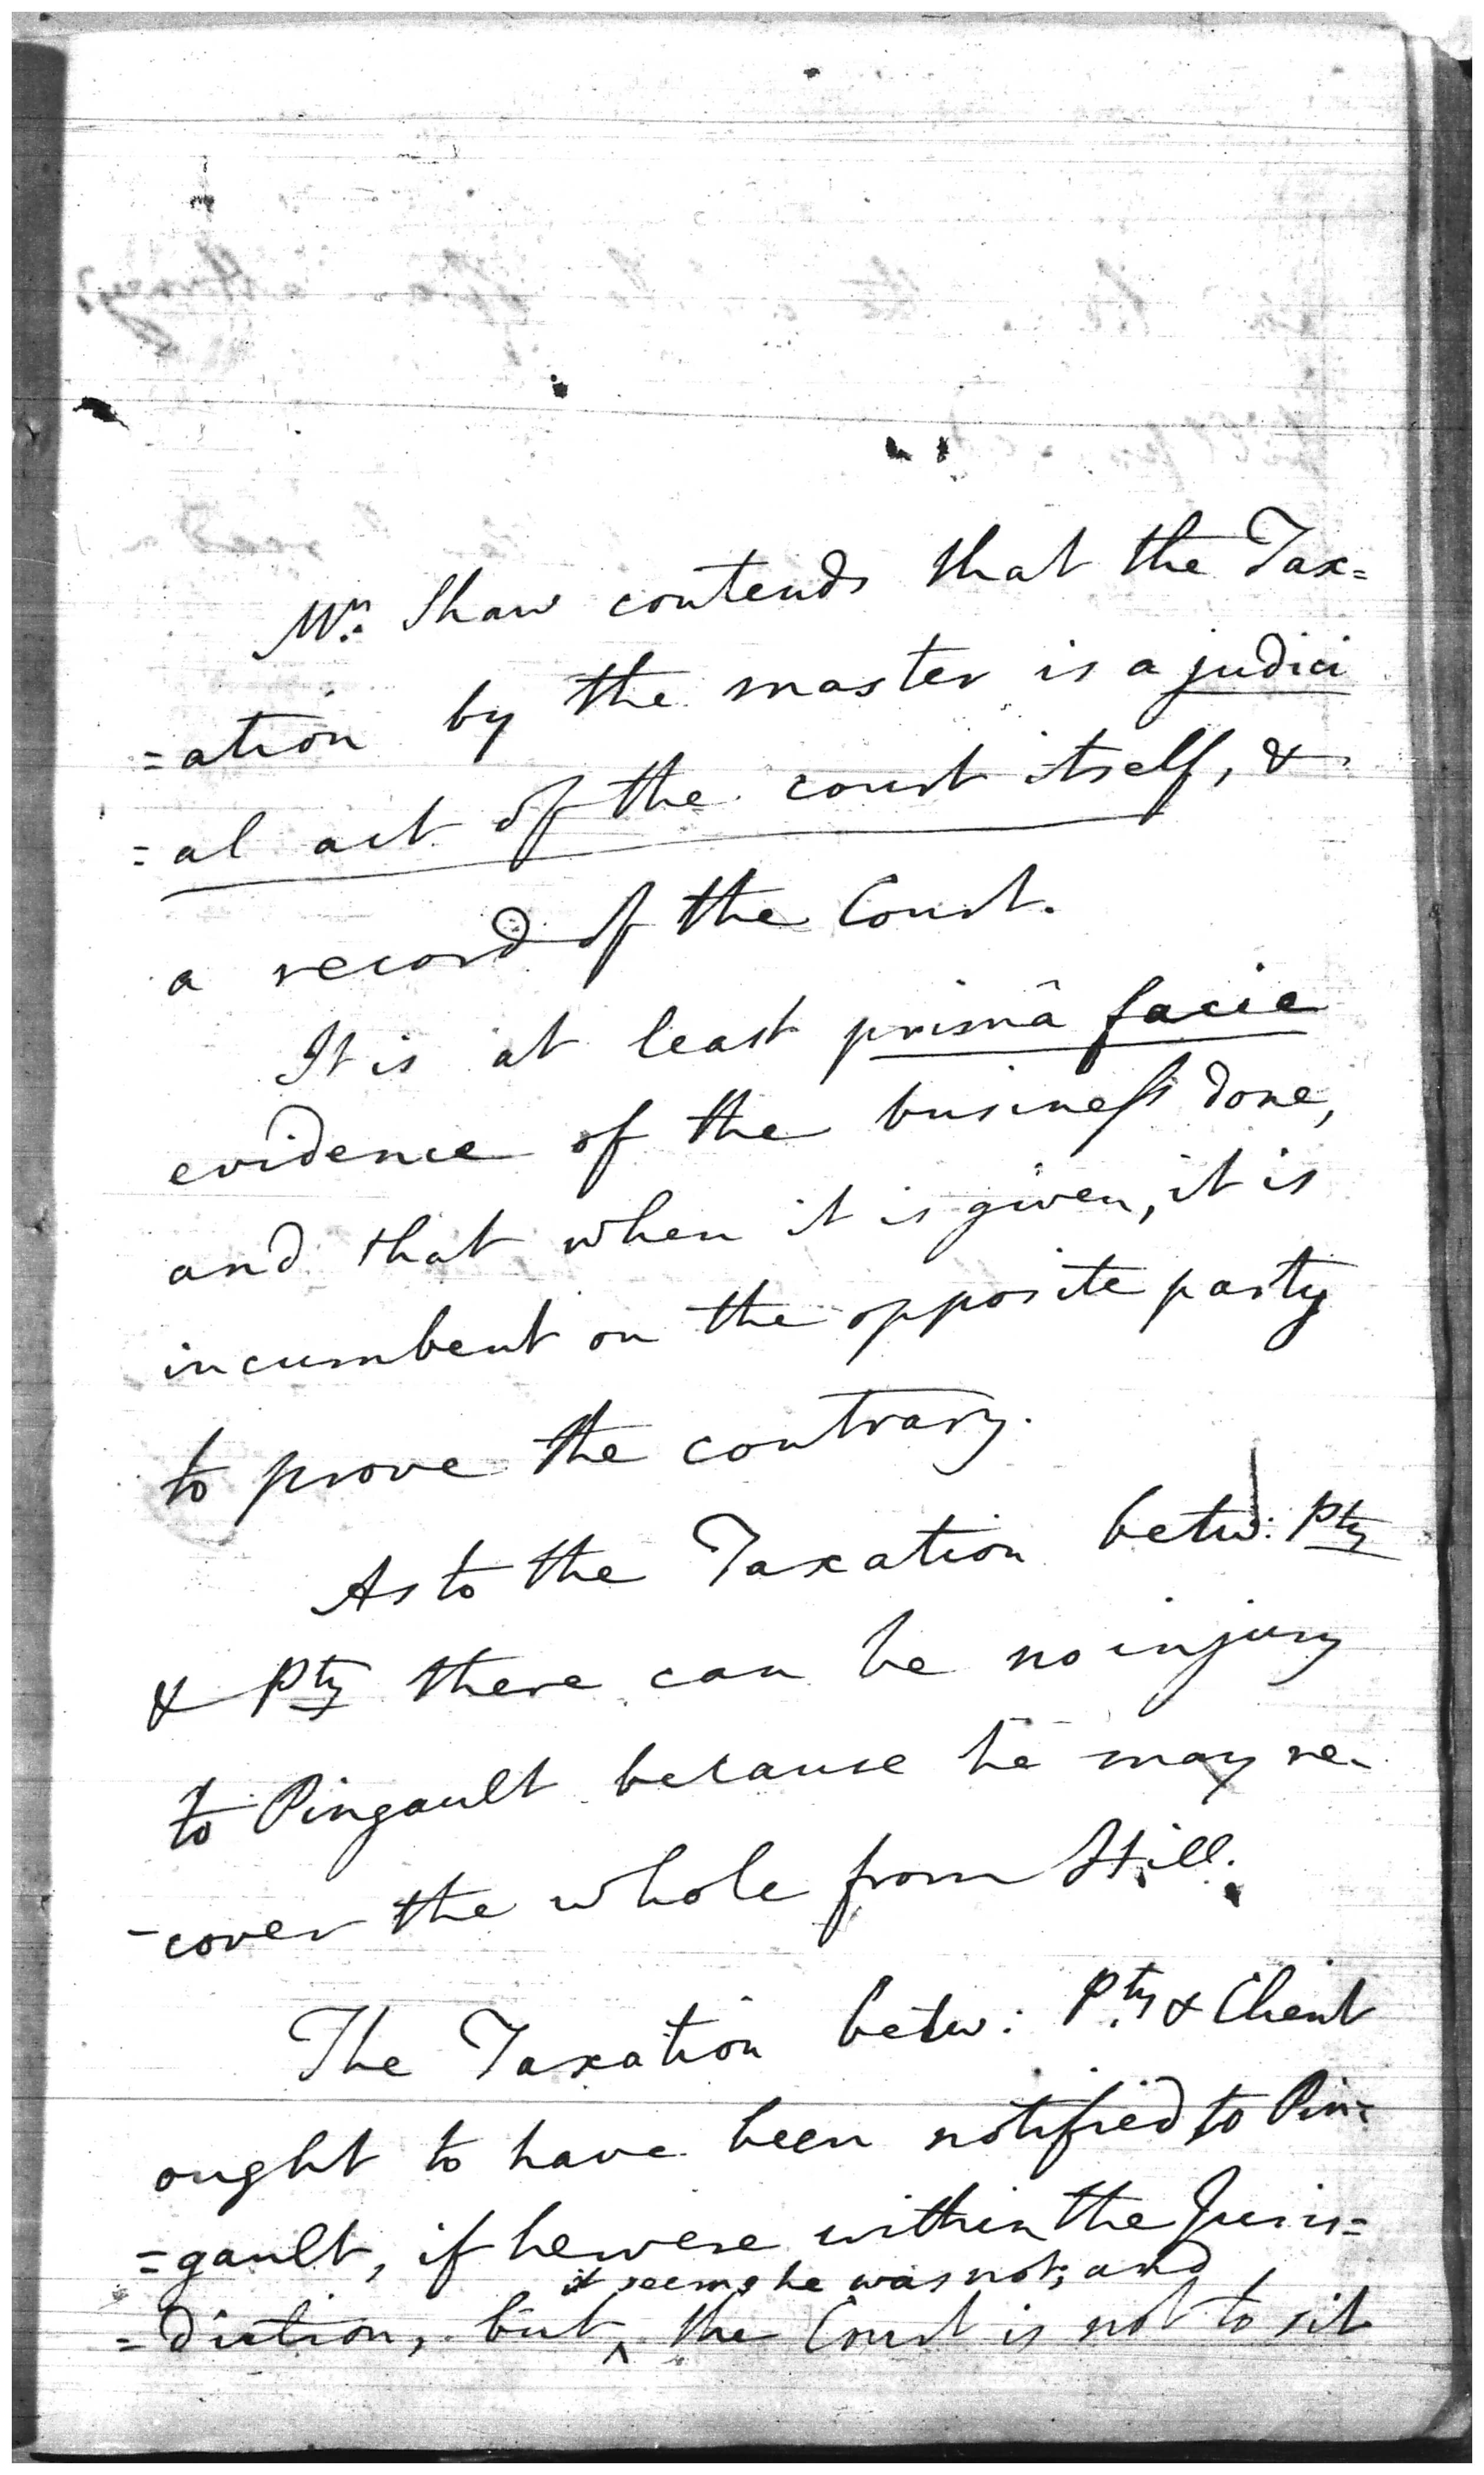 Mr. Shaw contends that the Tax=
=ation by the master is a judici
=al act of the court itself, &
a record of the Court.
It is at least primâ facie
evidence of the business done,
and that when it is given, it is
incumbent on the opposite party
to prove the contrary.
As to the Taxation betw: Pty
& Pty there can be no injury
to Pingault because he may re-
-cover the whole from Hill.
The Taxation betw: Pty & Client
ought to have been notified to Pin=
=gault, if he were within the Juris=
it seems he was not; and
=diction, but ^ the Court is not to sit